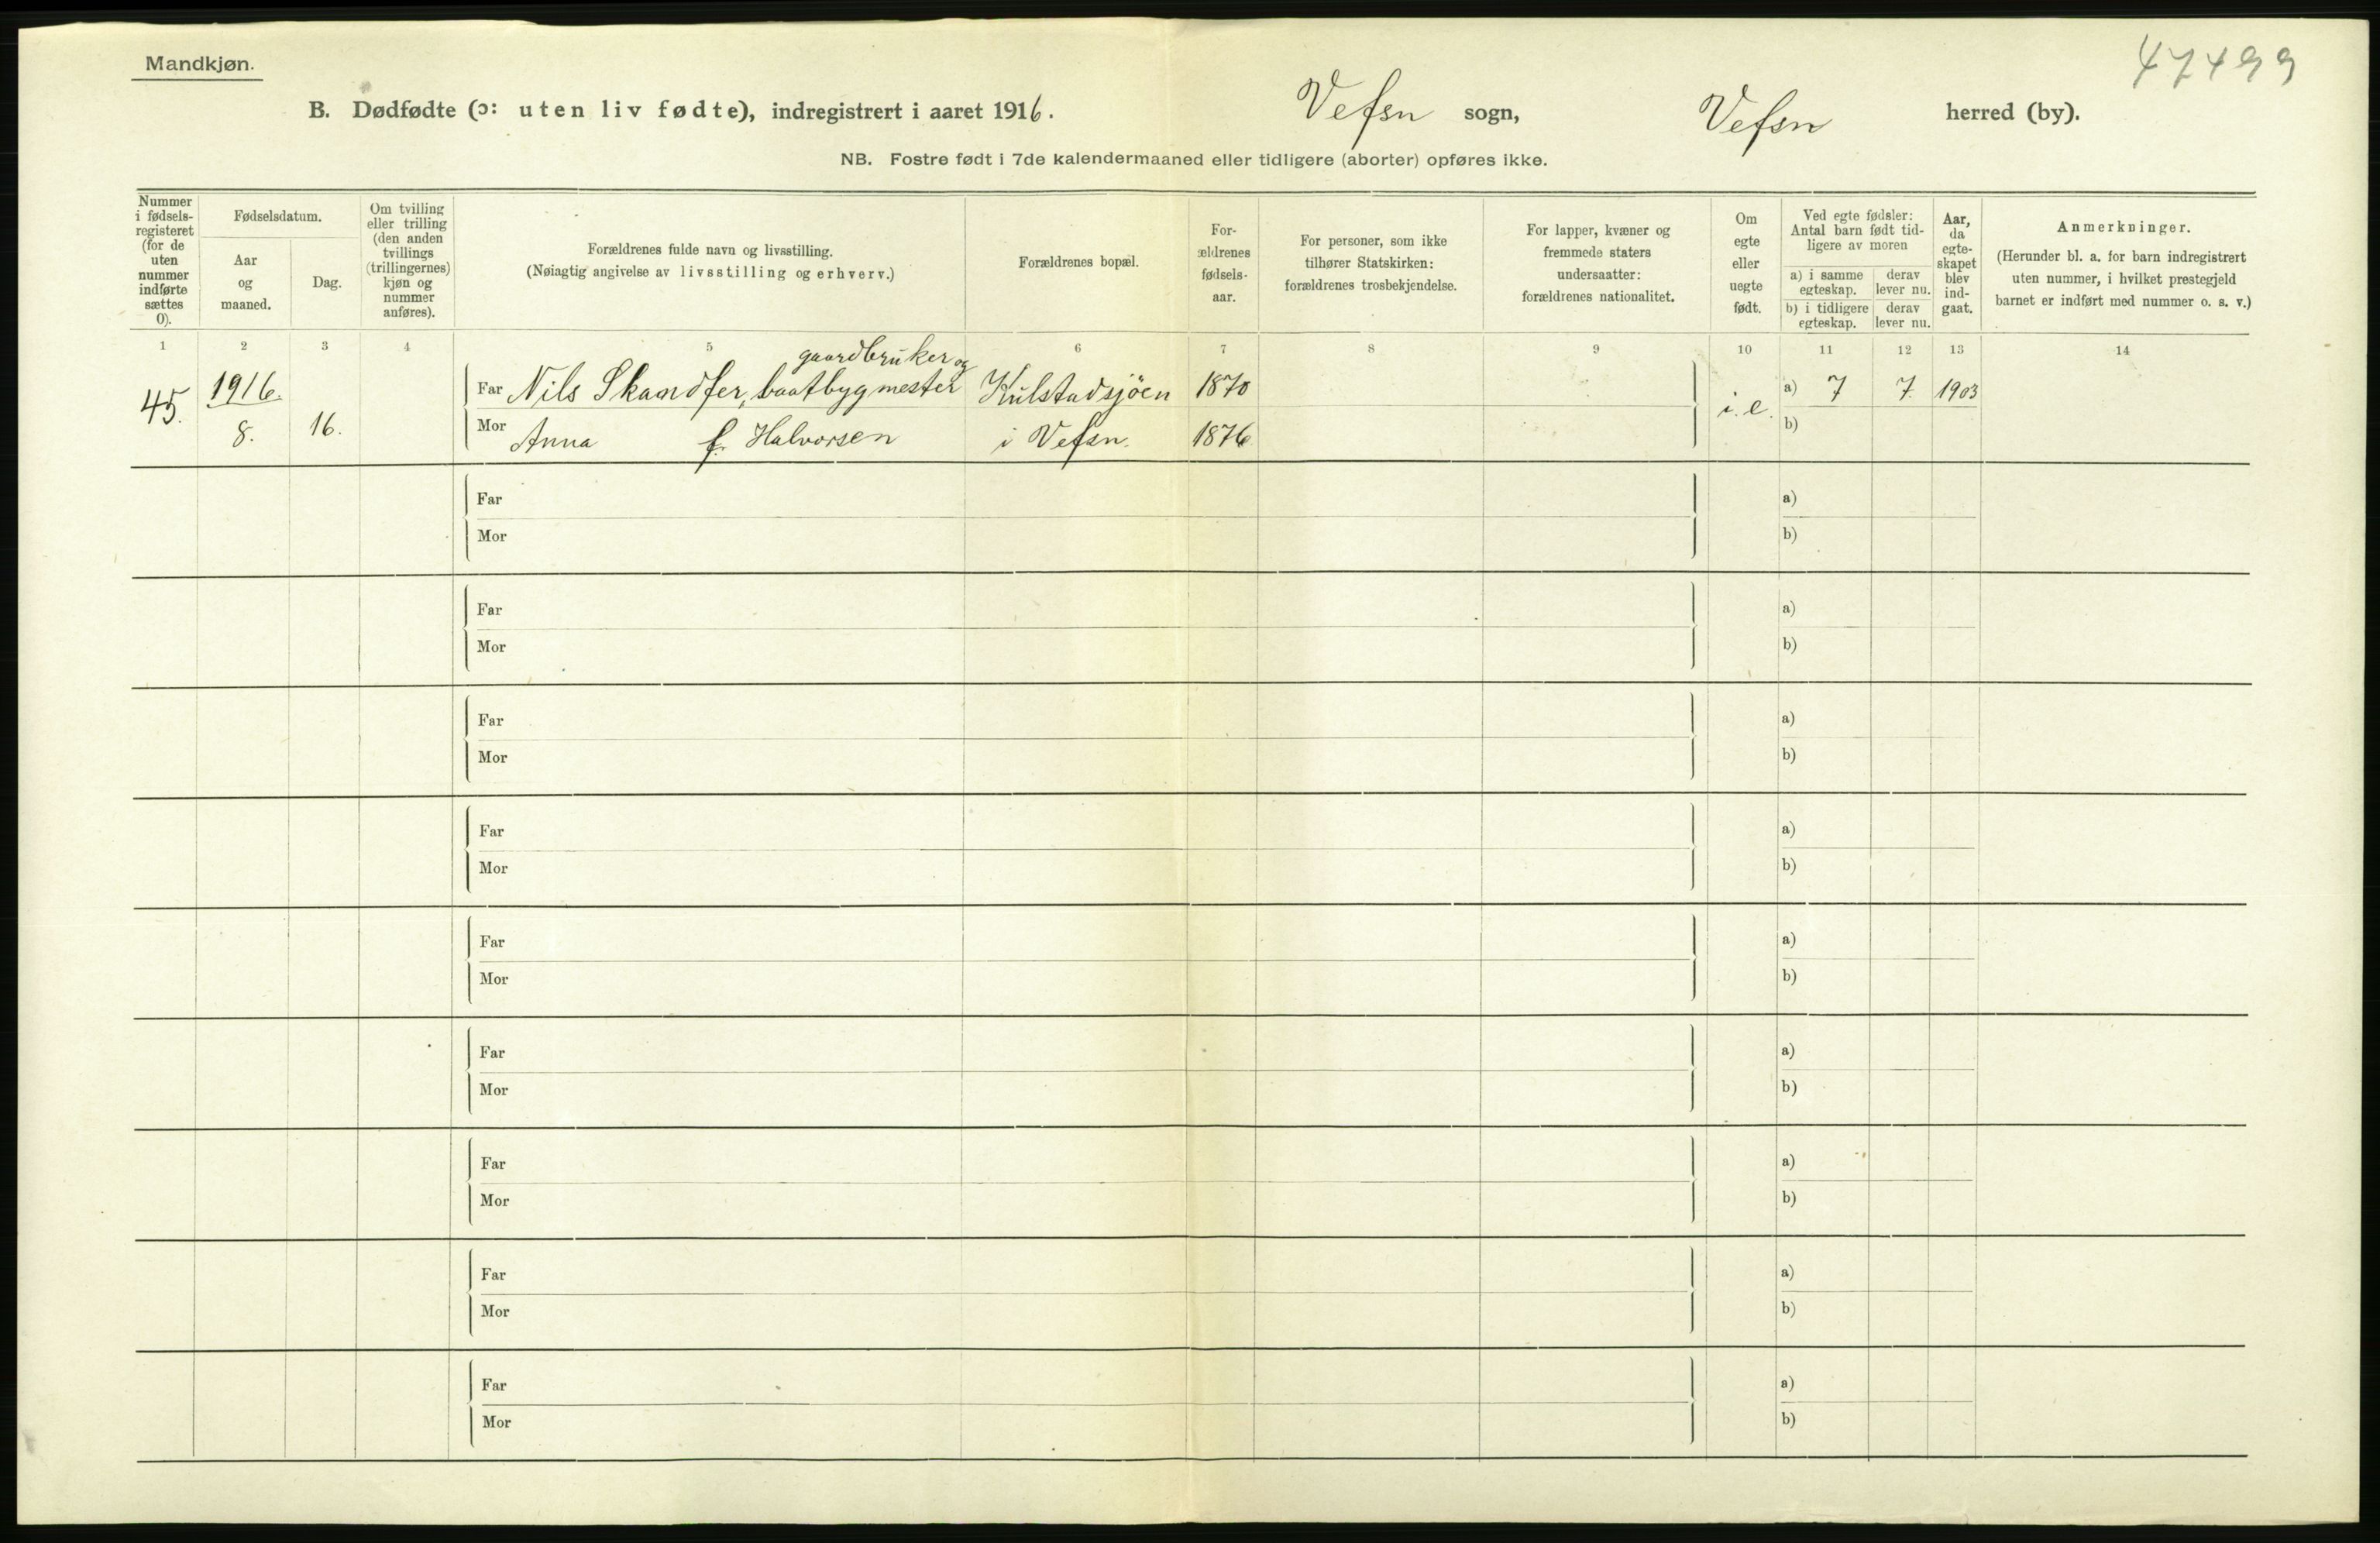 Mandkjøn.
47499
B. Dødfødte (ɔ: uten liv fødte), indregistrert i aaret 1916. Vefsn sogn, Vefsn herred (by).
NB. Fostre født i 7de kalendermaaned eller tidligere (aborter) opføres ikke.
Nummer
i fødsels-
registeret
(for de
uten
nummer
indførte
sættes
0).
Fødselsdatum.
Aar
og
maaned.
Dag.
Om tvilling
eller trilling
(den anden
tvillings
(trillingernes)
kjøn og
nummer
anføres).
Forældrenes fulde navn og livsstilling.
(Nøiagtig angivelse av livsstilling og erhverv.)
Forældrenes bopæl.
For-
ældrenes
fødsels-
aar.
For personer, som ikke
tilhører Statskirken:
forældrenes trosbekjendelse.
For lapper, kvæner og
fremmede staters
undersaatter:
forældrenes nationalitet.
Om
egte
eller
uegte
født.
Ved egte fødsler:
Antal barn født tid-
ligere av moren
a) i samme
egteskap.
derav
lever nu.
b) i tidligere
egteskap.
derav
lever nu.
Aar,
da
egte-
skapet
blev
ind-
gaat.
Anmerkninger.
(Herunder bl. a. for barn indregistrert
uten nummer, i hvilket prestegjeld
barnet er indført med nummer o. s. v.)
1 2 3 4 5 6 7 8 9 10 11 12 13 14
gaardbruker og
45. 1916. Far Nils Skandfer, baatbygmester Kulstadsjöen 1870 i. e. a) 7 7. 1903
8. 16. Mor Anna f. Halvorsen i Vefsn. 1876 b)
Far a)
Mor b)
Far a)
Mor b)
Far a)
Mor b)
Far a)
Mor b)
Far a)
Mor b)
Far a)
Mor b)
Far a)
Mor b)
Far a)
Mor b)
Far a)
Mor b)